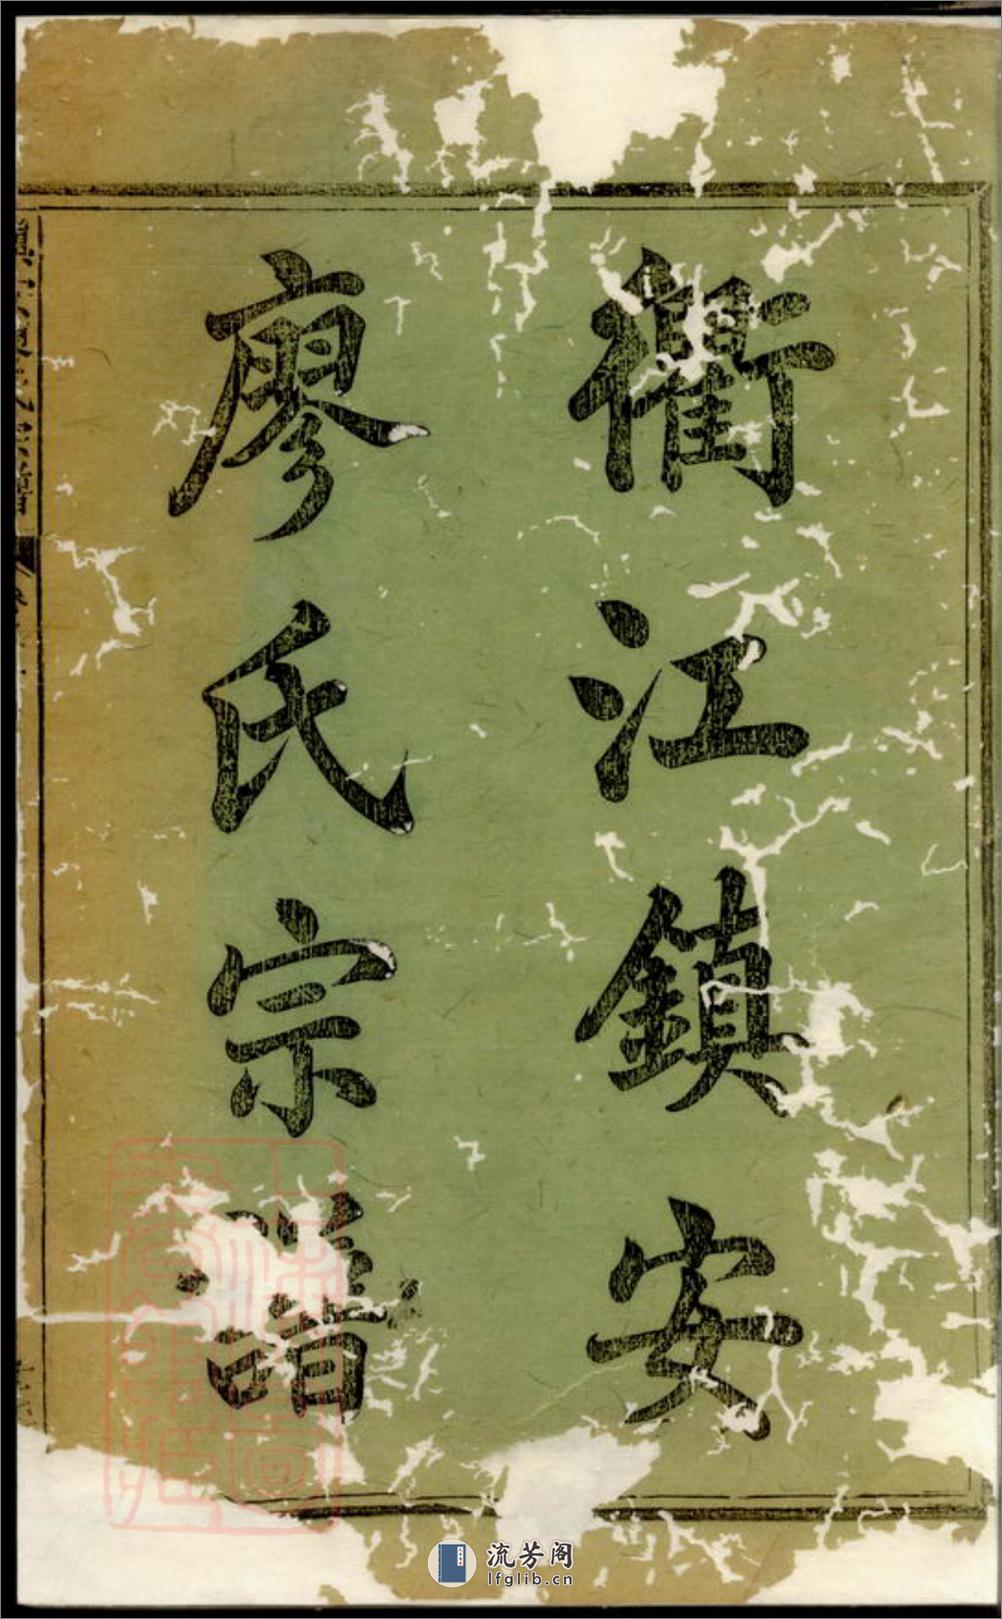 衢江鎮安
廖氏宗譜
流芳阁
lfglib.cn